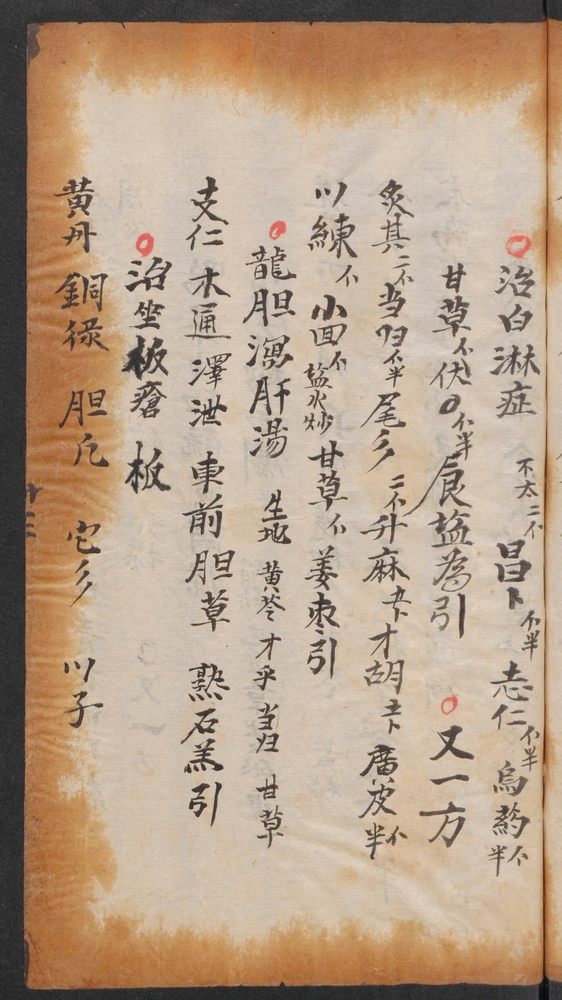 治白淋症 不太二个 昌卜个半 志仁个半 烏藥个半
甘草个 伏〇个半 食盐為引 又一方
炙其二个 当归个半 尾彡二个 升麻五卜 才胡五卜 廣皮个半
川練个 小回个盐水炒 甘草个 姜枣引
龍胆瀉肝湯 生地 黄芩 才乎 当归 甘草
支仁 木通 澤泄 車前 胆草 熟石羔引
治坐板瘡 板
黄丹 銅彔 胆凡 它彡 川子
廿三